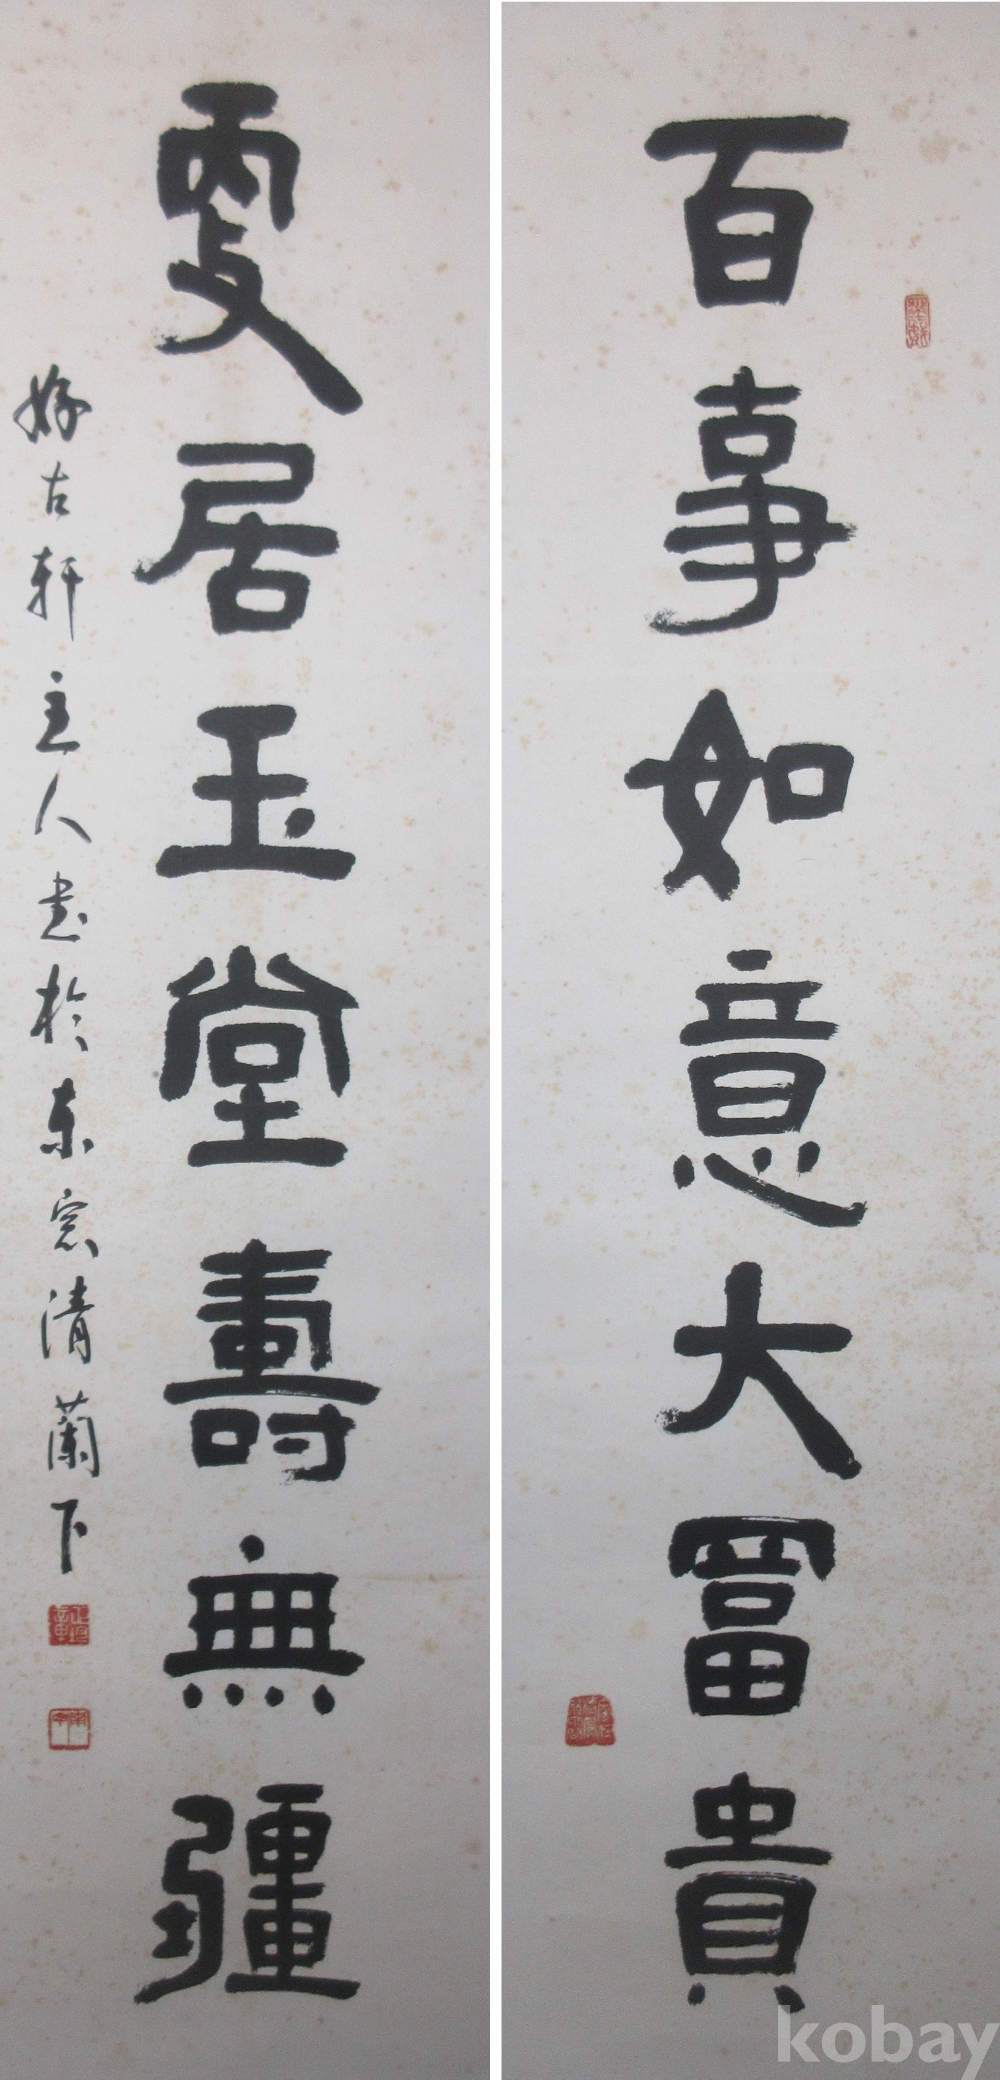 百事如意大富貴
更居玉堂壽無疆
好古軒主人書於東窓清蘭下
kobay